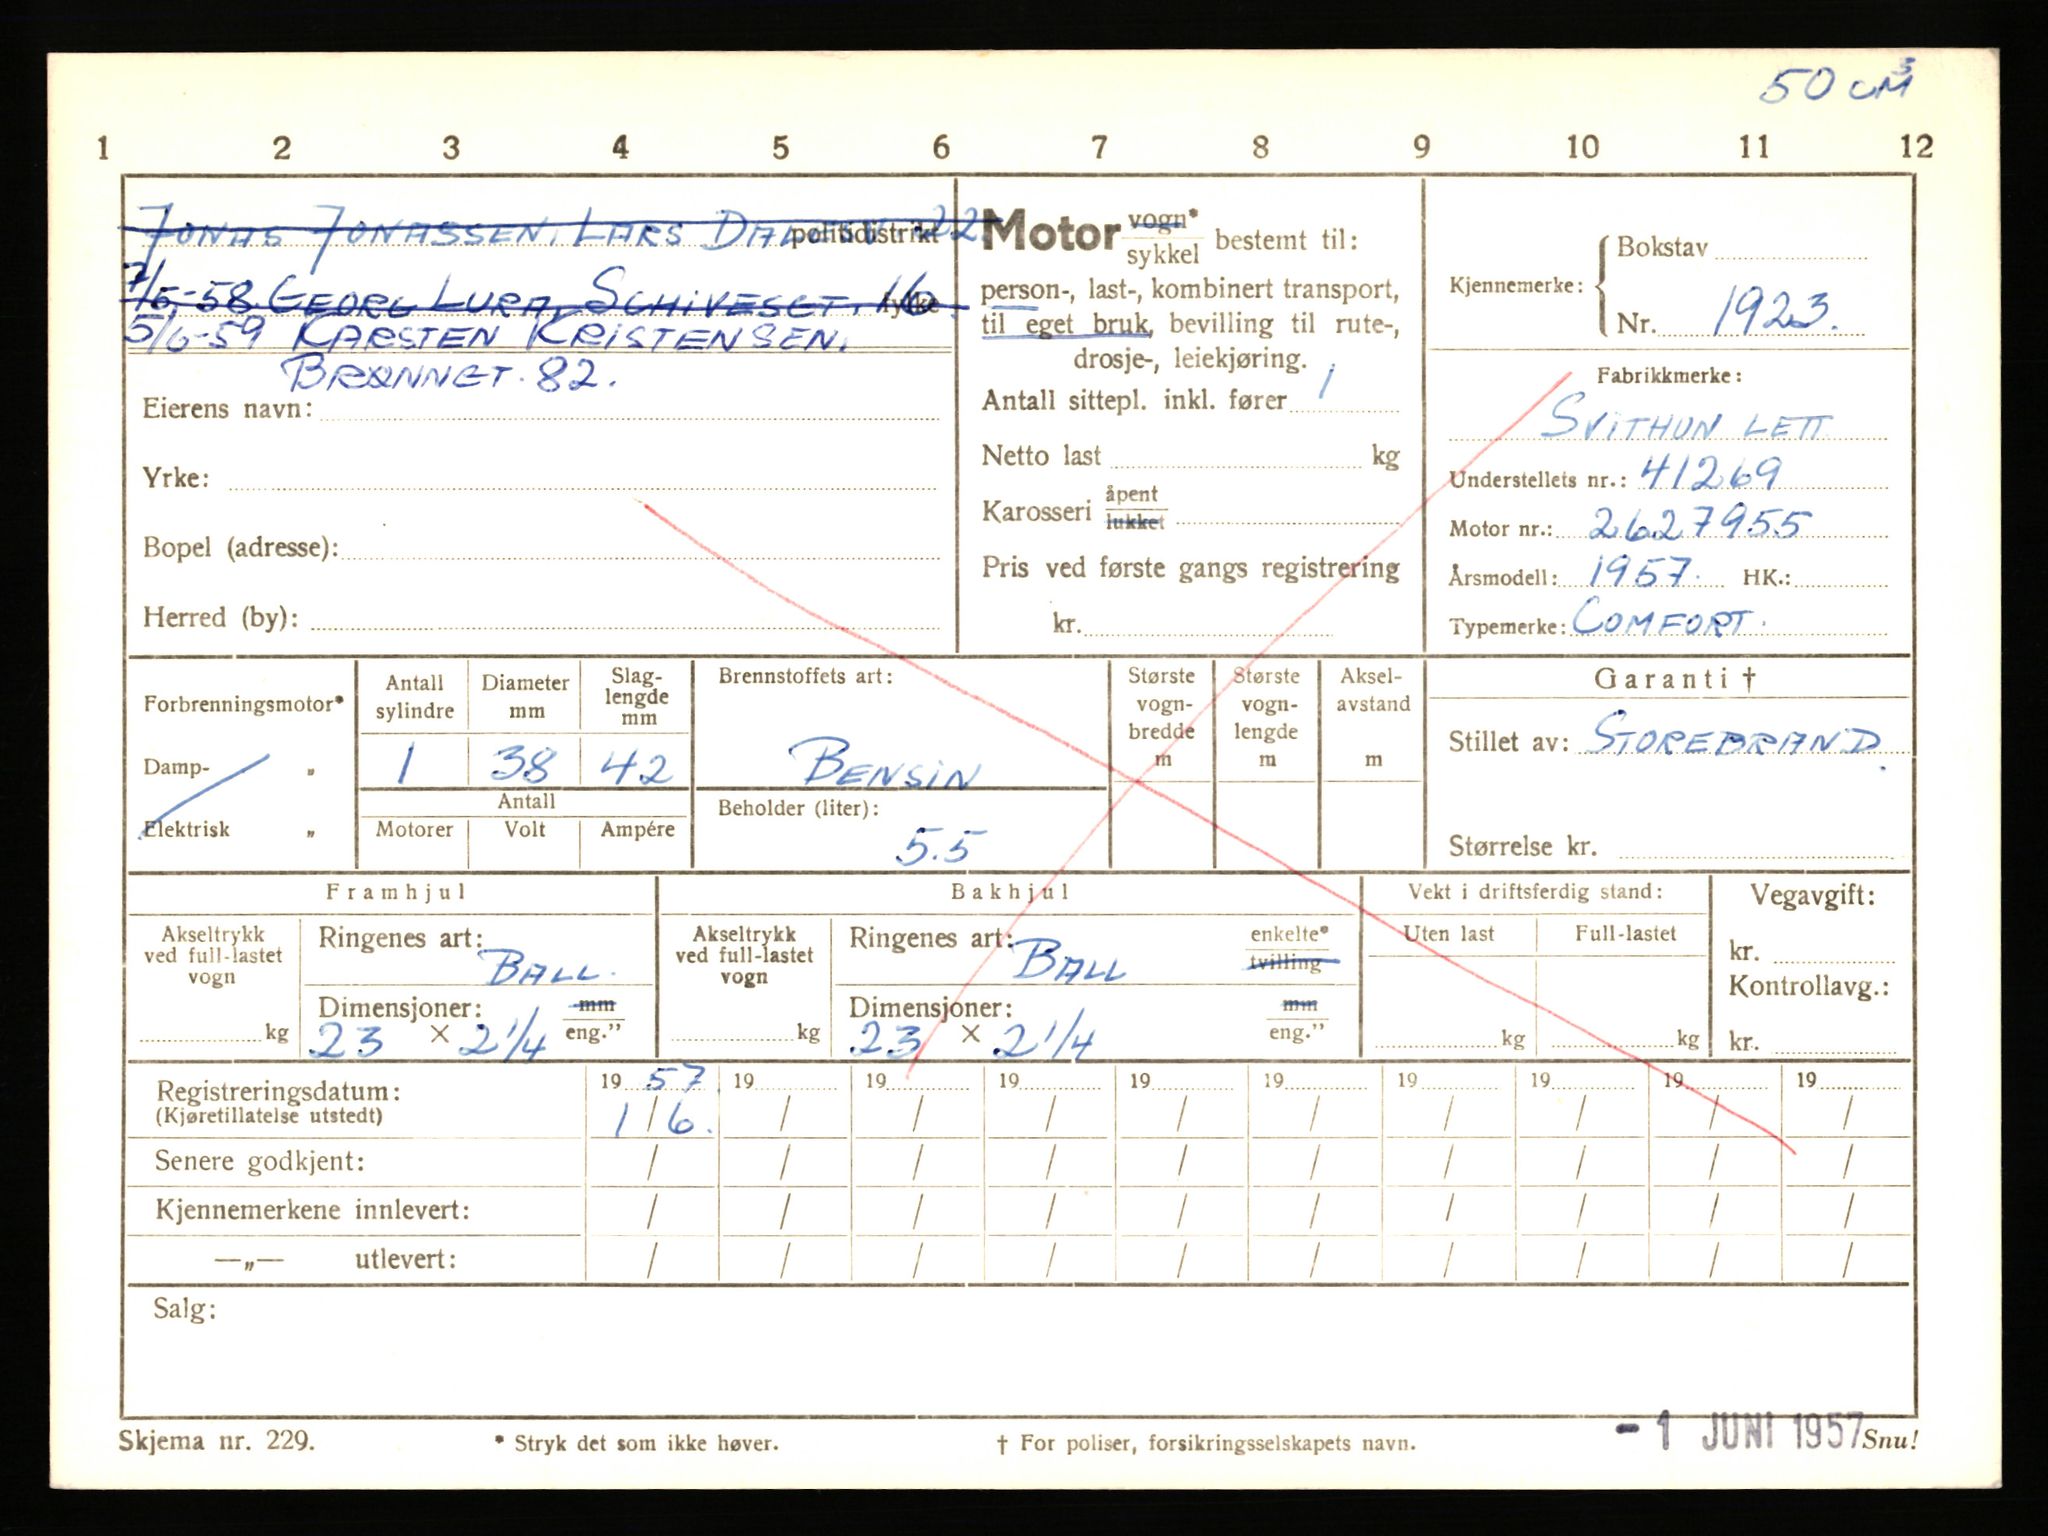 50 cM³
1 2 3 4 5 6 7 8 9 10 11 12
JONAS JONASSEN, LARS 22. politidistrikt
7/5-58. GEORG LURA, 16 fylke
5/6-59 KARSTEN KRISTENSEN.
BRØNNGT. 82.
Eierens navn:
Yrke:
Bopel (adresse):
Herred (by):
Motor vogn* sykkel bestemt til:
person-, last-, kombinert transport,
til eget bruk, bevilling til rute-,
drosje-, leiekjøring.
Antall sittepl. inkl. fører 1
Netto last kg
Karosseri åpent lukket
Pris ved første gangs registrering
kr.
Kjennemerke: Bokstav
Nr. 1923.
Fabrikkmerke:
SVITHUN LETT
Understellets nr.: 41269
Motor nr.: 2627955
Årsmodell: 1957. HK.:
Typemerke: COMFORT.
Forbrenningsmotor*
Damp- „
Elektrisk „
Antall sylindre
Diameter mm
Slag-lengde mm
1 38 42
Antall
Motorer Volt Ampére
Brennstoffets art:
BENSIN
Beholder (liter):
5.5
Største vogn-bredde m
Største vogn-lengde m
Aksel-avstand m
Garanti †
Stillet av: STOREBRAND.
Størrelse kr.
Framhjul
Akseltrykk ved full-lastet vogn
kg
Ringenes art:
BALL.
Dimensjoner: mm
23 × 2 1/4 eng."
Bakhjul
Akseltrykk ved full-lastet vogn
kg
Ringenes art: enkelte*
BALL tvilling
Dimensjoner: mm
23 × 2 1/4 eng."
Vekt i driftsferdig stand:
Uten last Full-lastet
kg kg
Vegavgift:
kr.
Kontrollavg.:
kr.
Registreringsdatum: 19 57. 19 19 19 19 19 19 19 19 19
(Kjøretillatelse utstedt) 1 / 6. / / / / / / / / /
Senere godkjent: / / / / / / / / / /
Kjennemerkene innlevert: / / / / / / / / / /
—„— utlevert: / / / / / / / / / /
Salg:
- 1 JUNI 1957
Skjema nr. 229. * Stryk det som ikke høver. † For poliser, forsikringsselskapets navn. Snu!